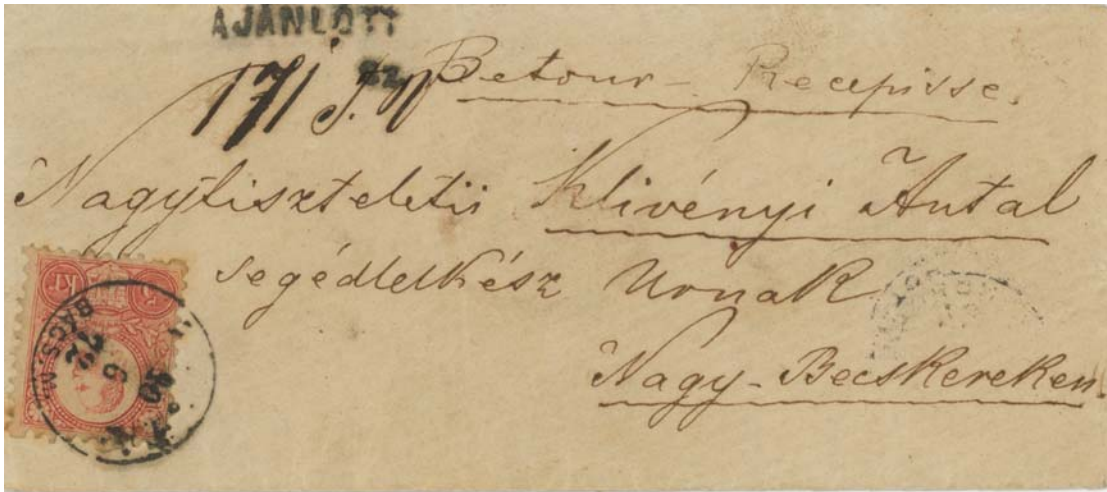 AJÁNLOTT
171 Retour-Recepisse.
Nagytiszteletü Klivényi Antal
segédlelkész Urnak
Nagy-Becskereken.
5 KR
BÁCS. M.
30
6
72